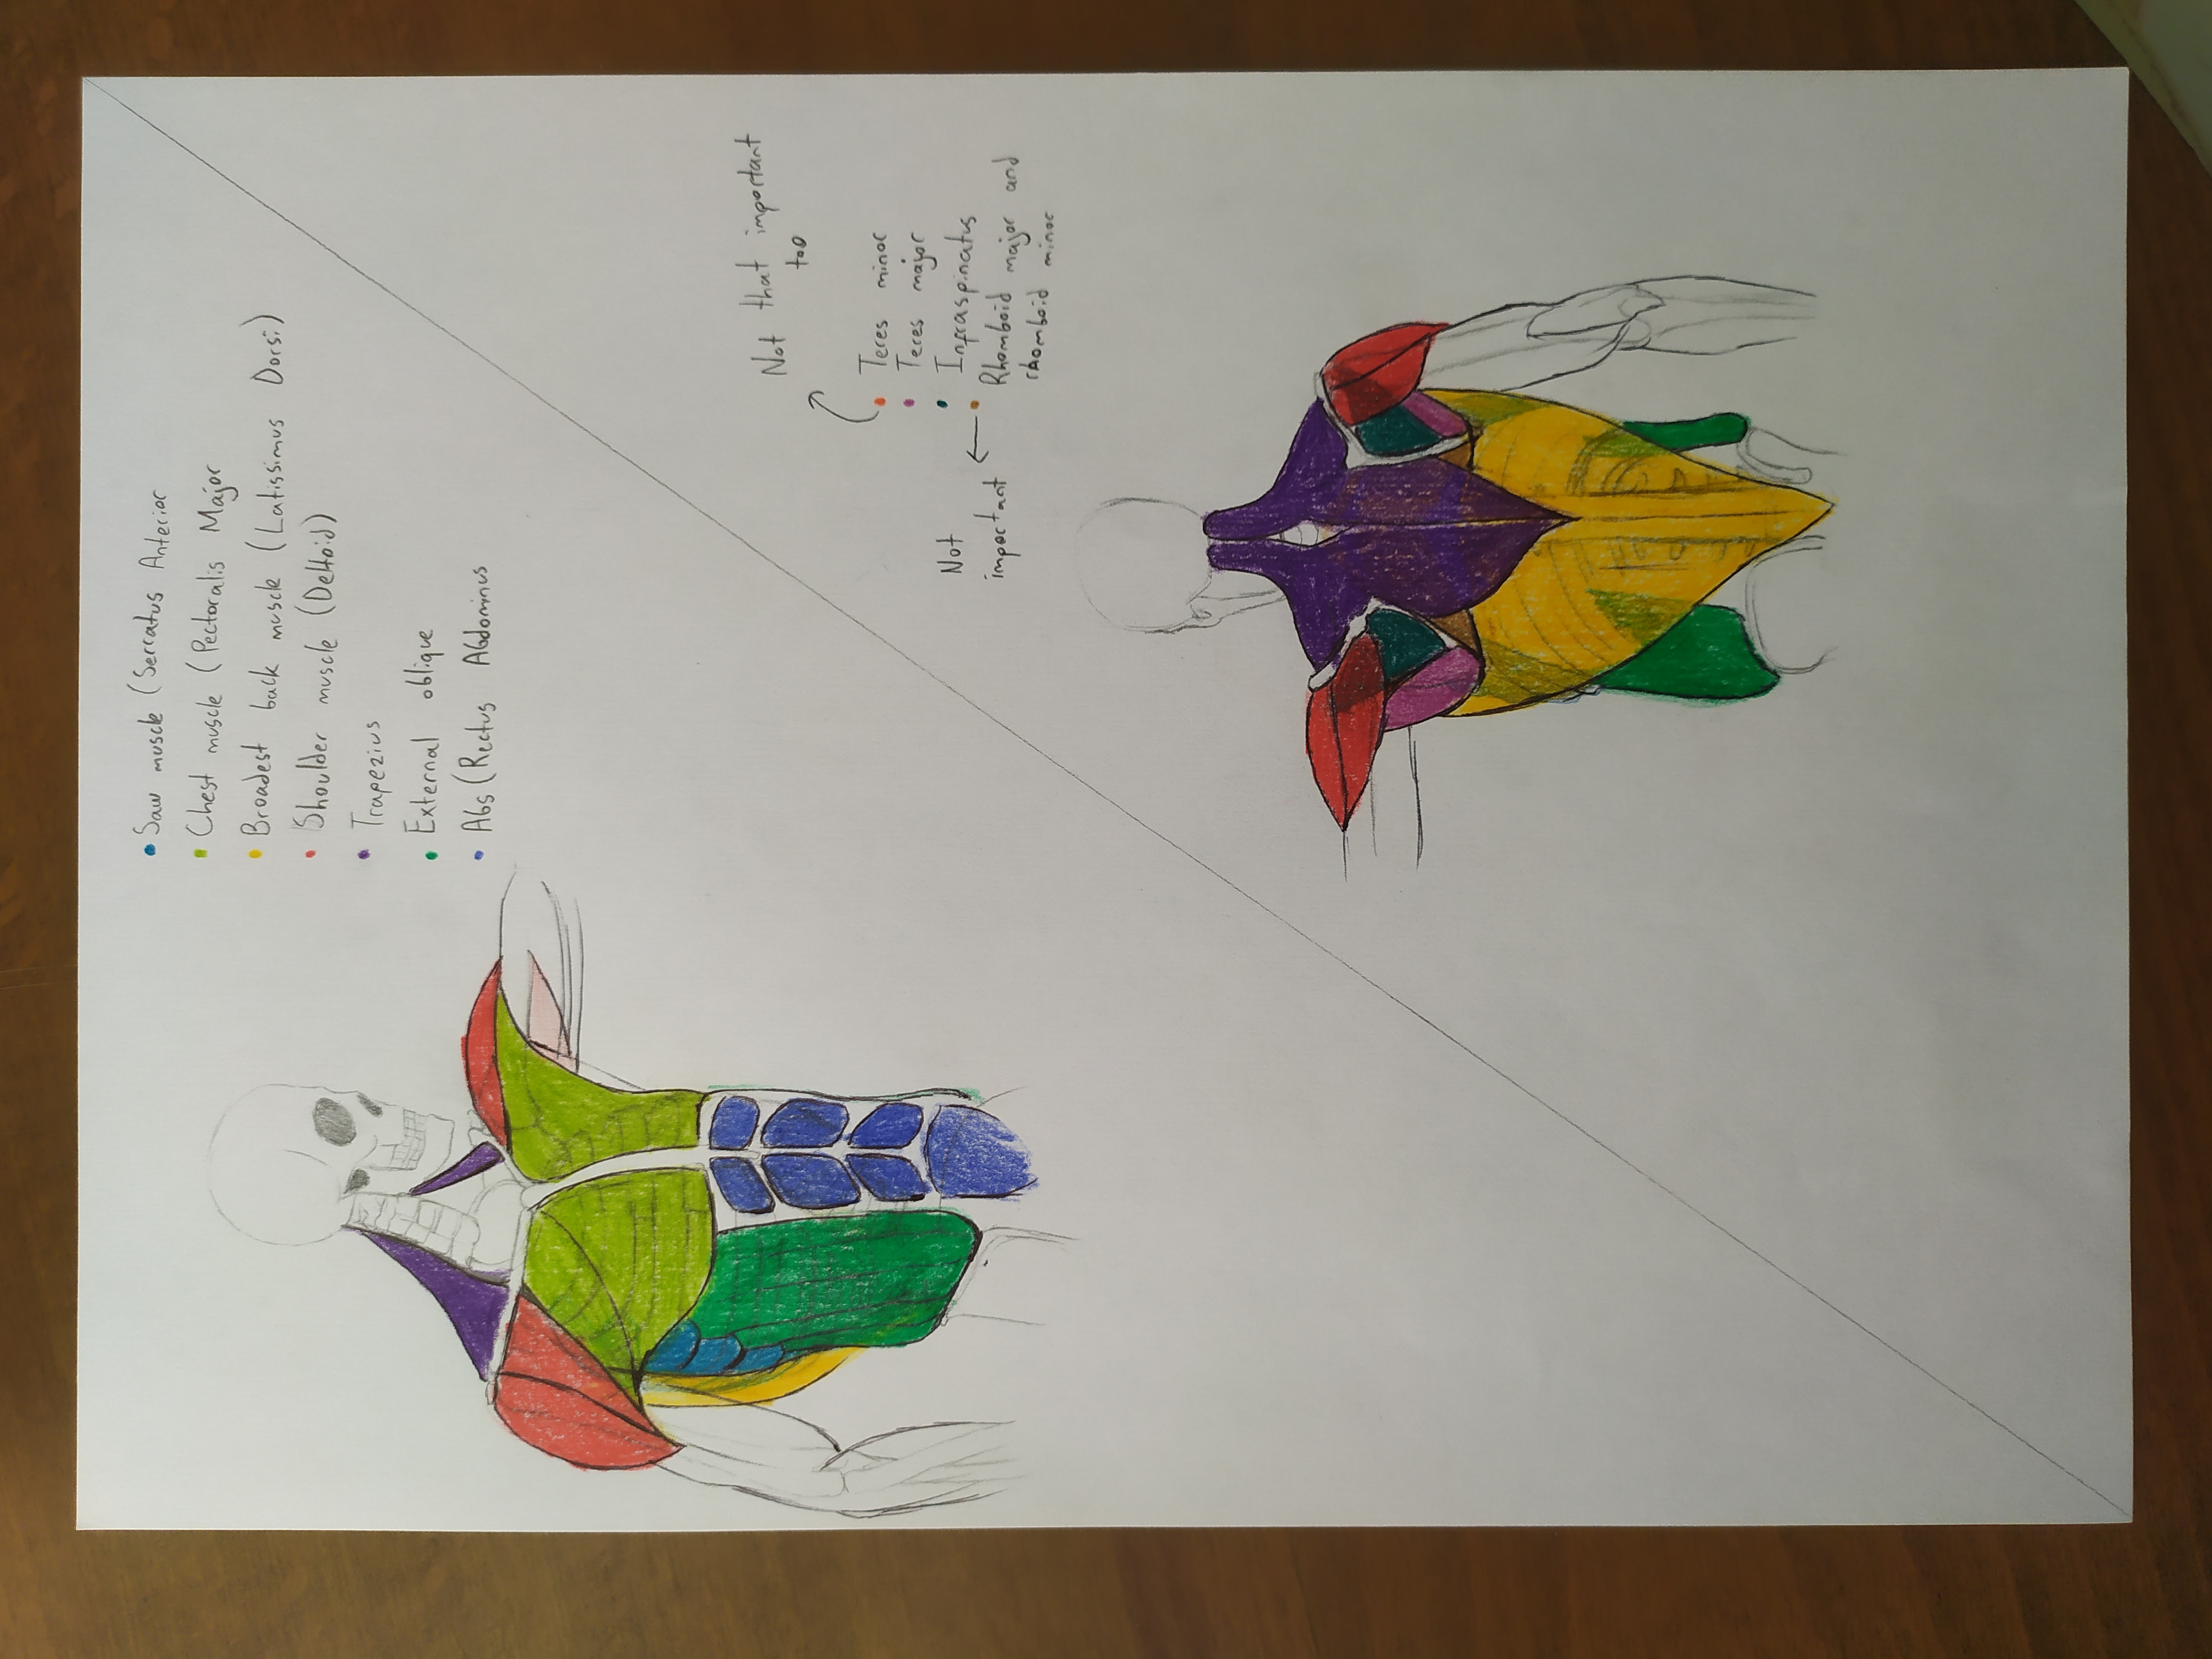 Saw muscle (Serratus Anterior
Chest muscle (Pectoralis Major
Broadest back muscle (Latissimus Dorsi)
Shoulder muscle (Deltoid)
Trapezius
External oblique
Abs (Rectus Abdominus
Not that important
too
Teres minor
Teres major
Infraspinatus
Not
important
Rhomboid major and
rhomboid minor